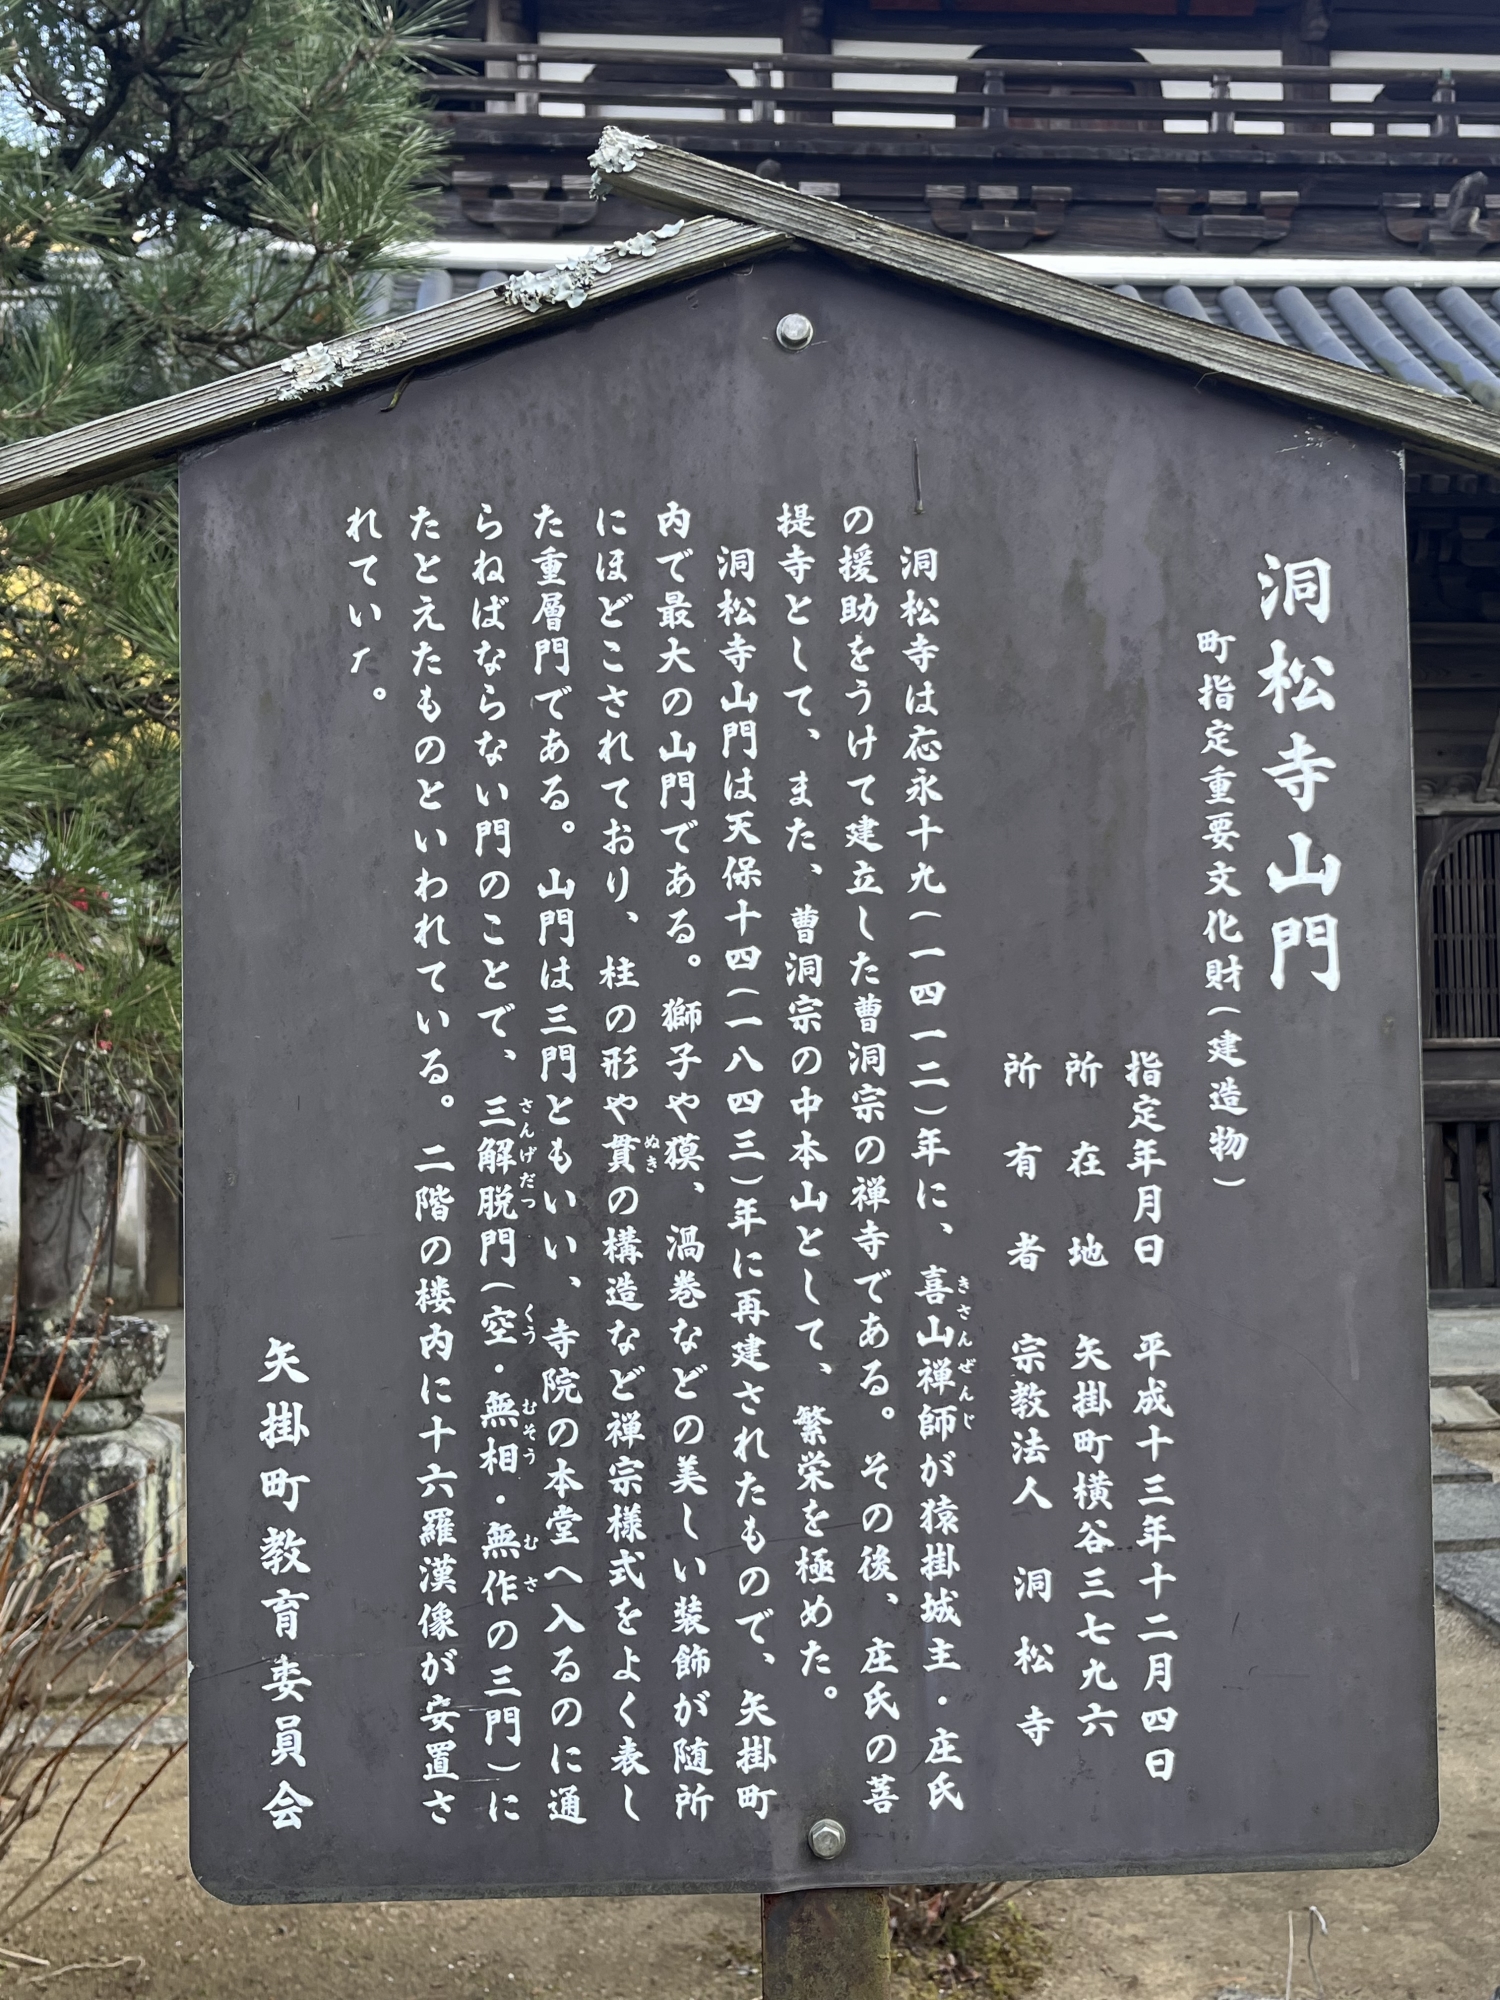 洞松寺山門
町指定重要文化財(建造物)
指定年月日　平成十三年十二月四日
所在地　矢掛町横谷三七九六
所有者　宗教法人　洞松寺
洞松寺は応永十九(一四一二)年に、喜山禅師が猿掛城主・庄氏
きさんぜんじ
の援助をうけて建立した曹洞宗の禅寺である。その後、庄氏の菩
提寺として、また、曹洞宗の中本山として、繁栄を極めた。
洞松寺山門は天保十四(一八四三)年に再建されたもので、矢掛町
内で最大の山門である。獅子や獏、渦巻などの美しい装飾が随所
にほどこされており、柱の形や貫の構造など禅宗様式をよく表し
ぬき
た重層門である。山門は三門ともいい、寺院の本堂へ入るのに通
らねばならない門のことで、三解脱門(空・無相・無作の三門)に
さんげだつ　くう　むそう　むさ
たとえたものといわれている。二階の楼内に十六羅漢像が安置さ
れていた。
矢掛町教育委員会